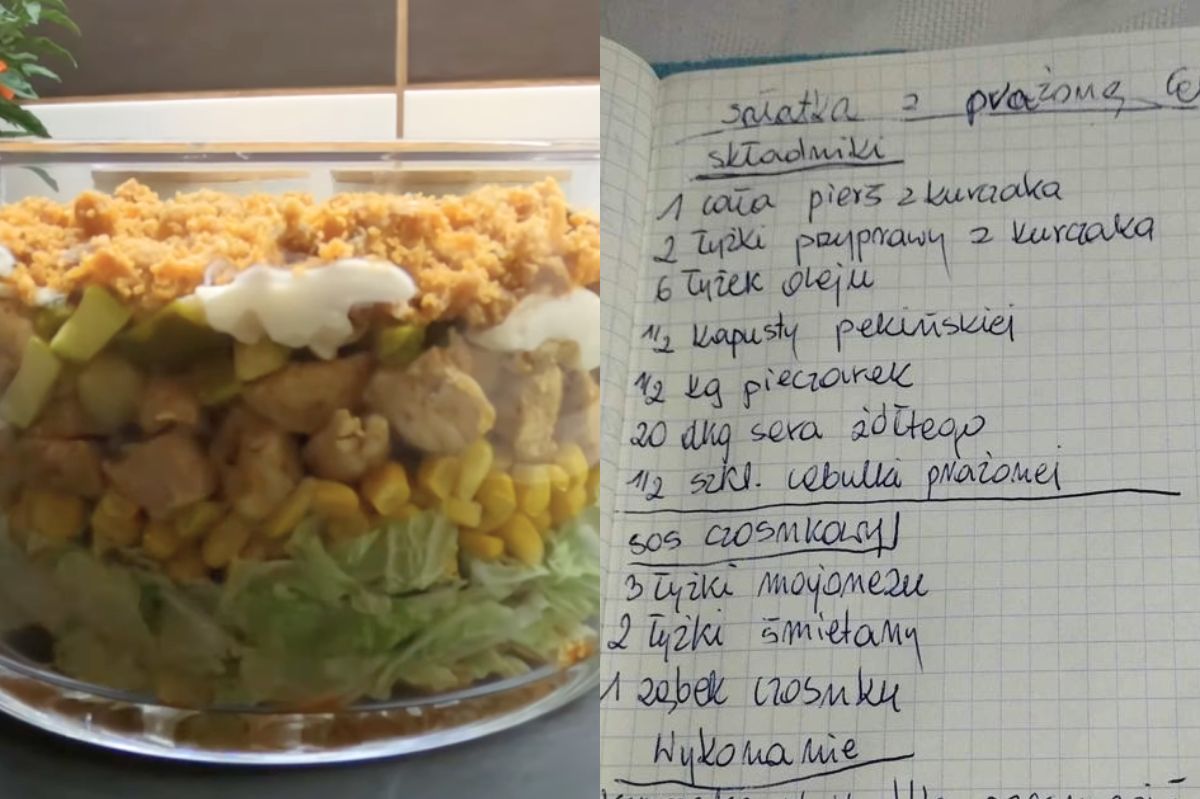 sałatka z prażoną
składniki
1 cała pierś z kurczaka
2 łyżki przyprawy z kurczaka
6 łyżek oleju
1/2 kapusty pekińskiej
1/2 kg pieczarek
20 dkg sera żółtego
1/2 szkl. cebulki prażonej
sos czosnkowy
3 łyżki majonezu
2 łyżki śmietany
1 ząbek czosnku
Wykonanie